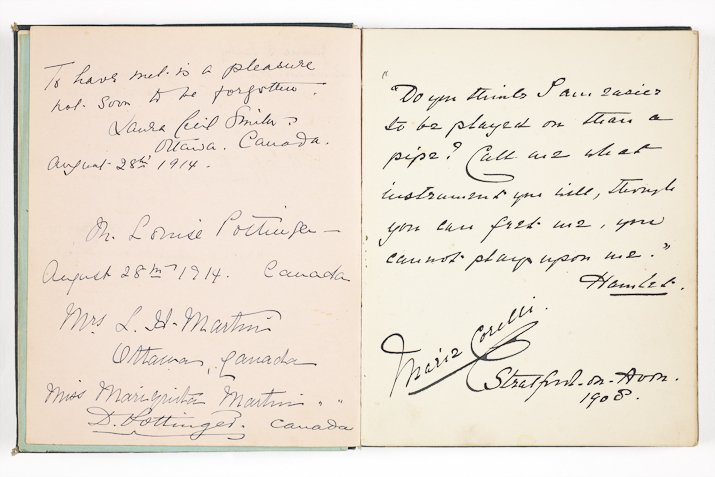 To have met is a pleasure
not soon to be forgotten.
Laura Cecil Smith
Ottawa. Canada.
August 28th 1914.
M. Louise Pottinger
August 28th 1914. Canada
Mrs L. H. Martin
Ottawa, Canada
Miss Martin " "
D. Pottinger. Canada
"Do you think I am easier
to be played on than a
pipe? Call me what
instrument you will, though
you can fret me, you
cannot play upon me."
Hamlet.
Marie Corelli.
Stratford-on-Avon.
1908.